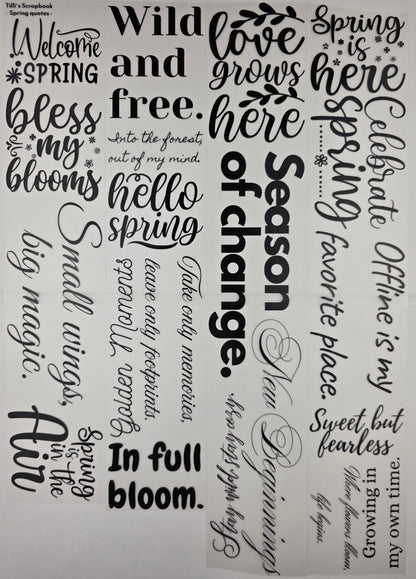 Tilli's Scrapbook
- Spring quotes -
Welcome
SPRING
bless
my
blooms
Small wings,
big magic.
Spring
is
in the
Air
Wild
and
free.
Into the forest,
out of my mind.
hello
spring
Take only memories,
leave only footprints.
golden Moments
In full
bloom.
love
grows
here
Season
of change.
New Beginnings
Stay wild
Spring
is
here
Celebrate
spring
Offline is my
favorite place.
Sweet but
fearless
Growing in
my own time.
Where flowers bloom,
life begins.